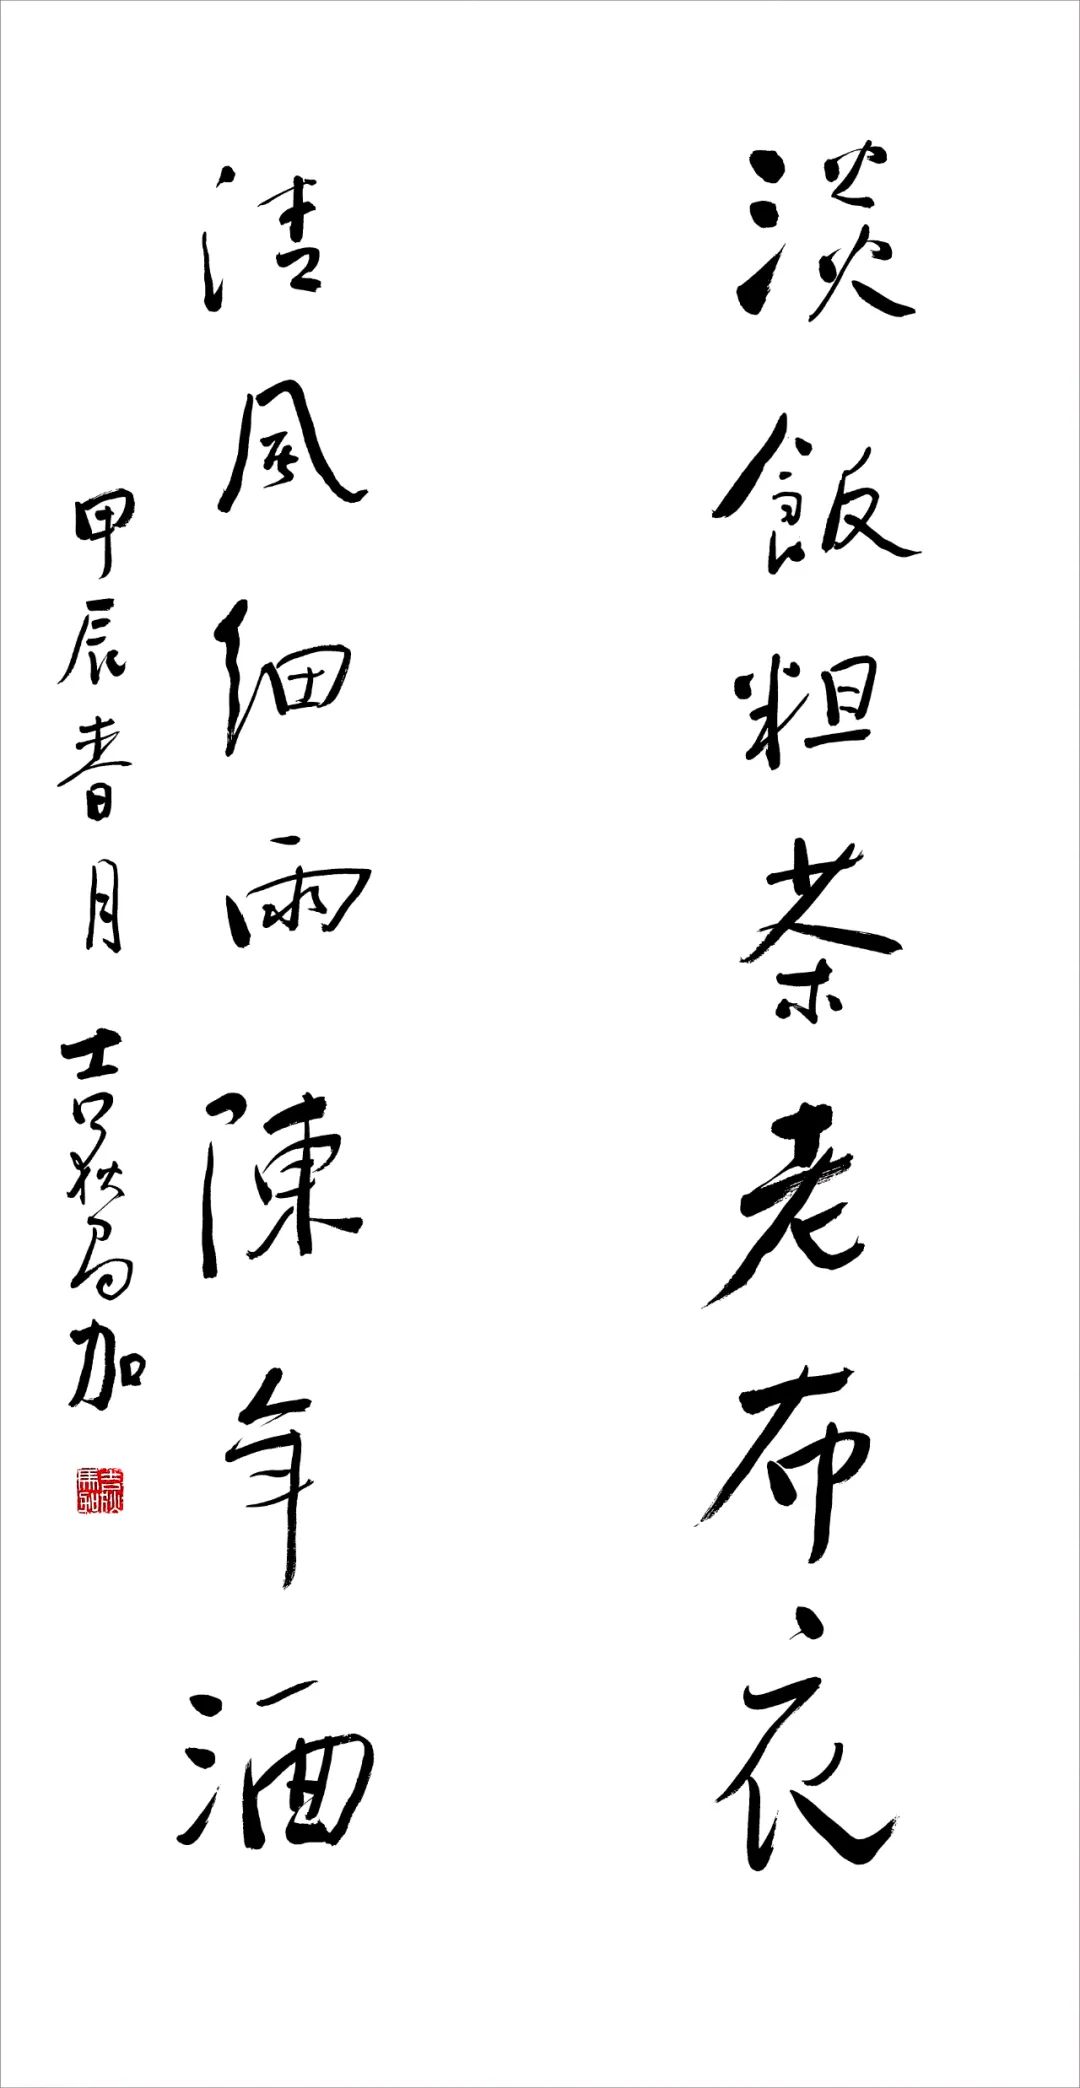 淡飯粗茶老布衣
清風細雨陳年酒
甲辰春月 吉狄馬加
吉狄馬加